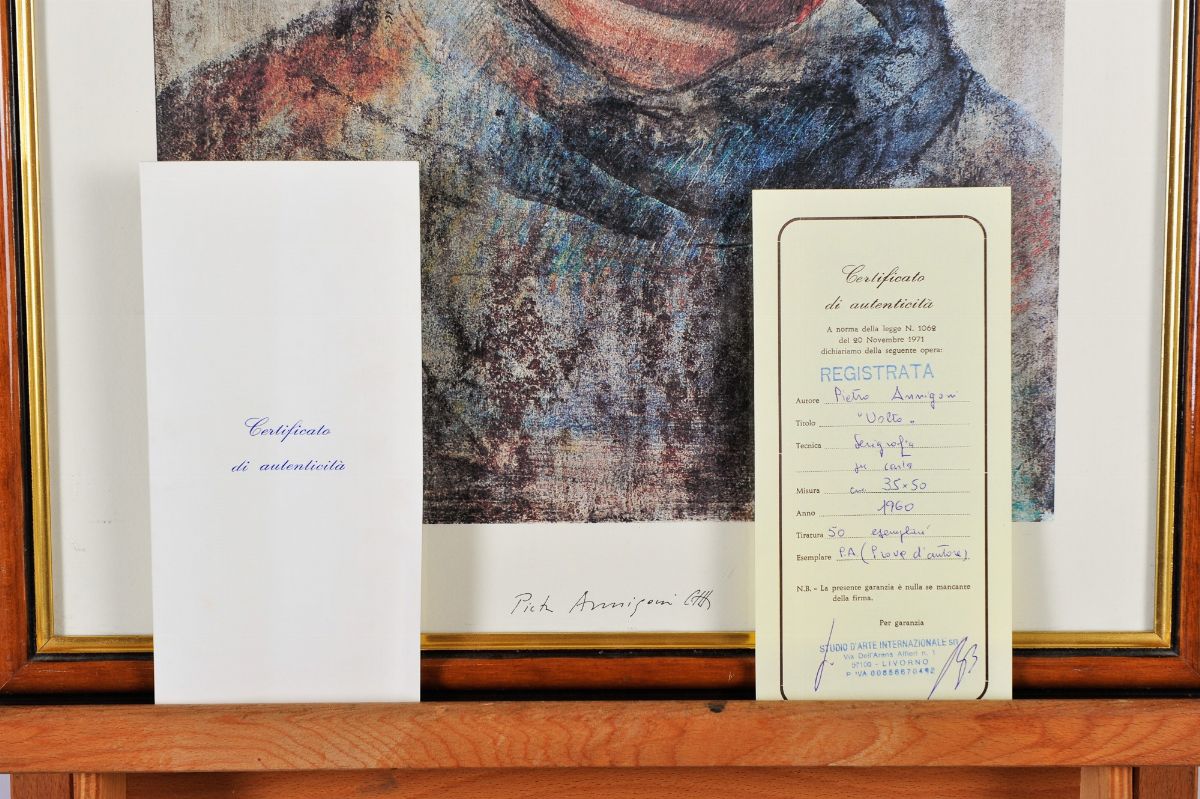 Certificato
di autenticità
Pietr Annigoni
Certificato
di autenticità
A norma della legge N. 1062
del 20 Novembre 1971
dichiariamo della seguente opera:
REGISTRATA
Autore Pietro Annigoni
Titolo "Volto"
Tecnica Serigrafia
su carta
Misura cm. 35×50
Anno 1960
Tiratura 50 esemplari
Esemplare P.A. (Prove d'autore)
N.B. - La presente garanzia è nulla se mancante
della firma.
Per garanzia
STUDIO D'ARTE INTERNAZIONALE srl
Via Dell'Arena Alfieri n. 1
57100 - LIVORNO
P. IVA 00886670492